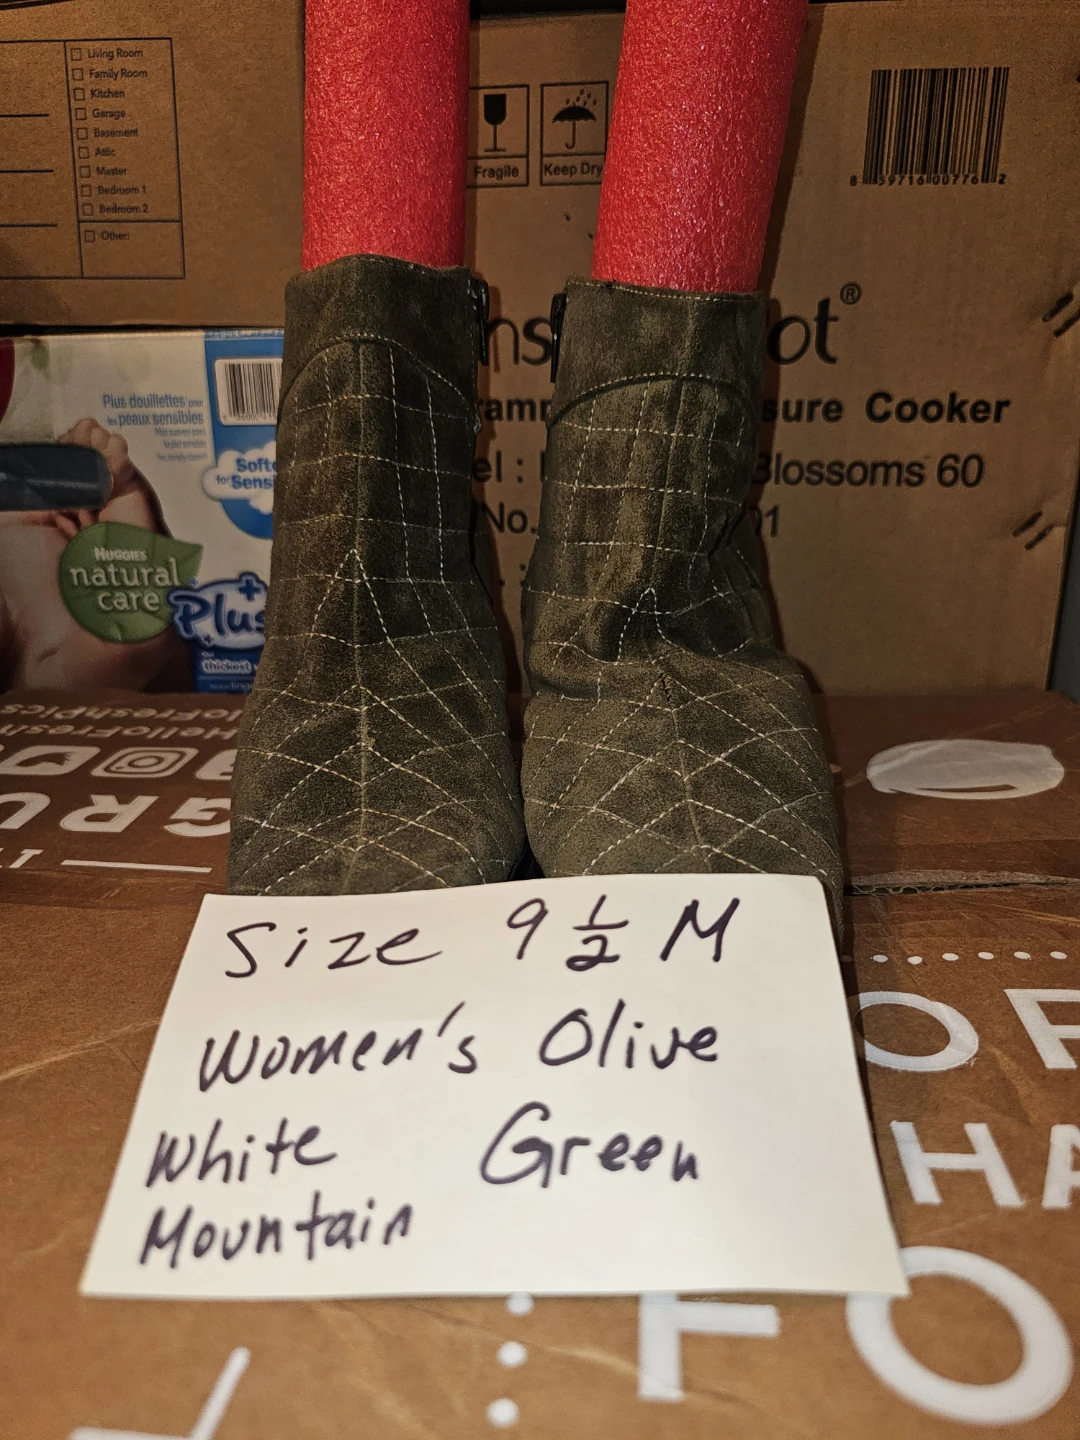 Living Room
Family Room
Kitchen
Garage
Basement
Attic
Master
Bedroom 1
Bedroom 2
Other:
Fragile
Keep Dry
8 59716 00776 2
ns ot®
ramm sure Cooker
el : Blossoms 60
No. 01
Plus douillettes pour
les peaux sensibles
Softe
for Sensi
HUGGIES
natural
care
Plus
thickest
HelloFreshPics
lloFresh
GRU
IT
OF
HA
FO
Size 9 1/2 M
Women's Olive
White Green
Mountain